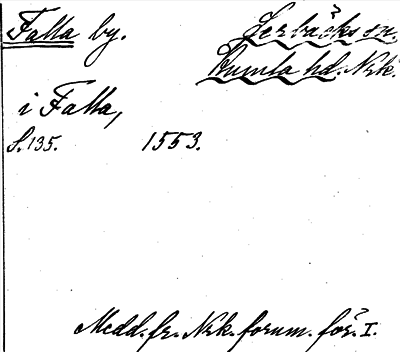 Falla by. Lerbäcks sn.
Kumla hd. Nrk.
i Falla,
S. 135. 1553.
Medd. fr. Nrk. fornm. för. I.